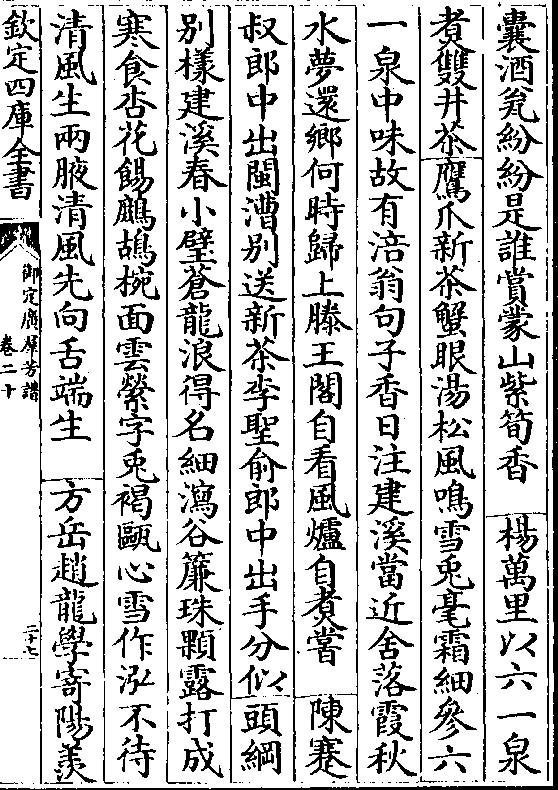 囊酒瓮紛紛是誰賞蒙山紫筍香　楊萬里以六一泉
煑雙井茶鷹爪新茶蟹眼湯松風鳴雪兎毫霜細參六
一泉中味故有涪翁句子香日注建溪當近舍落霞秋
水夢還鄉何時歸上滕王閣自看風爐自煑嘗　陳蹇
叔郎中出閩漕别送新茶李聖俞郎中出手分似頭綱
别樣建溪春小璧蒼龍浪得名細瀉谷簾珠顆露打成
寒食杏花餳鷓鴣椀面雲縈字兎褐甌心雪作泓不待
清風生兩腋清風先向舌端生　方岳趙龍學寄陽羨
欽定四庫全書
御定廣羣芳譜
卷二十
二十七